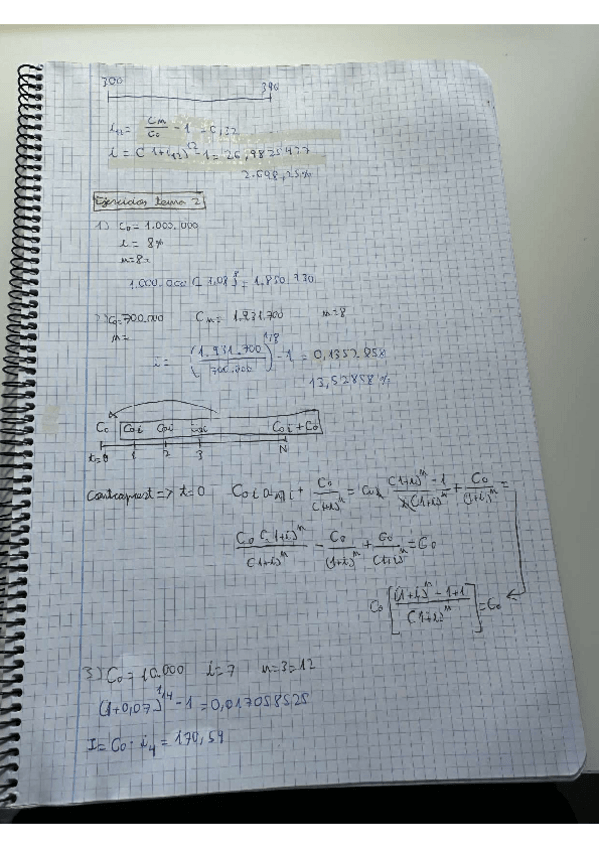 300 390
i₁₂ = Cn/C0 - 1 = 0,32
i = (1+i₁₂)¹² - 1 = 26,9825427
2.698,25%
Ejercicios tema 2
1) C0 = 1.000.000
i = 8%
n=8
1.000.000 (1,08)⁸ = 1.850.930
2) C0=700.000 Cn = 1.931.700 n=8
n=
i = (1.931.700/700.700)^1/8 - 1 = 0,1352858
13,52858%
C0 C0i C0i C0i C0i + C0
t=0 1 2 3 N
Contraprest => t=0 C0i an¬i + C0/(1+i)ⁿ = C0i (1+i)ⁿ-1/i(1+i)ⁿ + C0/(1+i)ⁿ =
C0(1+i)ⁿ/(1+i)ⁿ - C0/(1+i)ⁿ + C0/(1+i)ⁿ = C0
C0 [(1+i)ⁿ-1+1/(1+i)ⁿ] = C0
3) C0 = 10.000 i=7 n=3=12
(1+0,07)^1/4 - 1 = 0,017058525
I = C0 · i₄ = 170,59